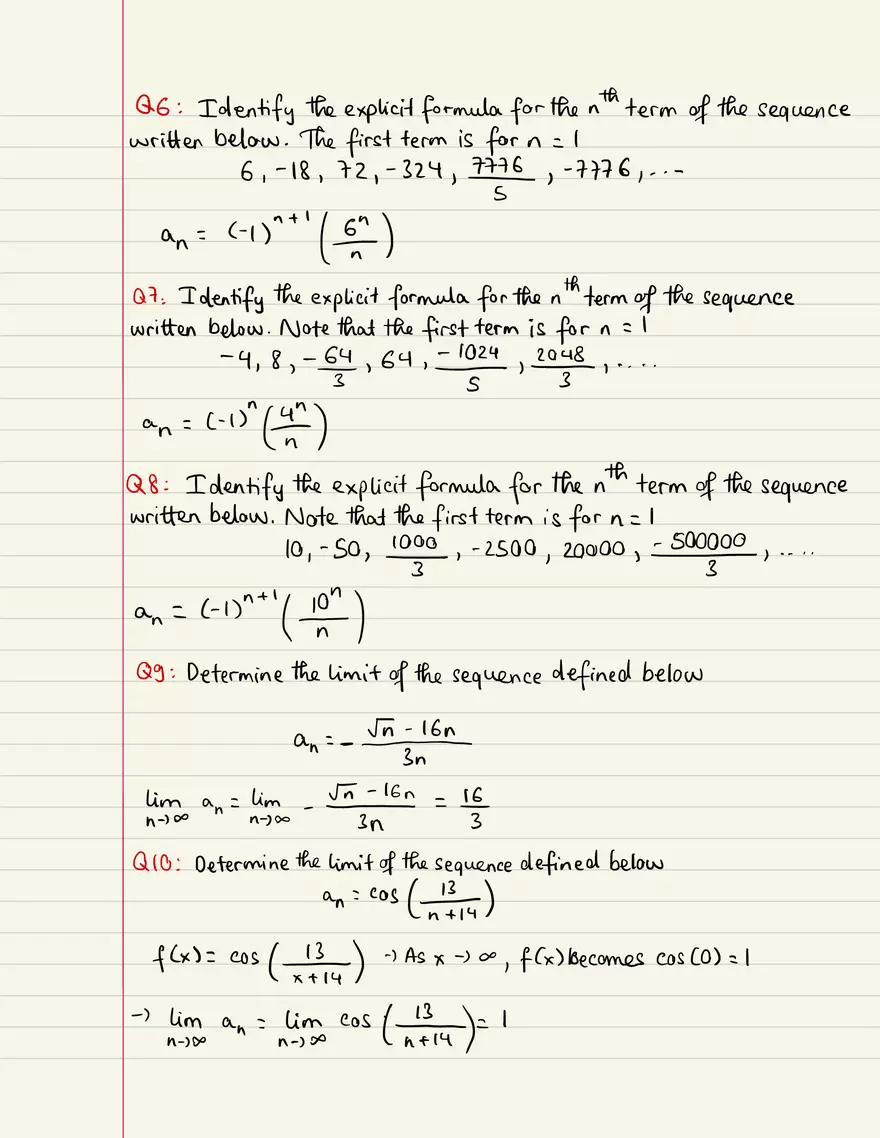 Q6: Identify the explicit formula for the n^th term of the sequence
written below. The first term is for n = 1
6, -18, 72, -324, 7776/5, -7776, ...
a_n = (-1)^(n+1) (6^n/n)
Q7. Identify the explicit formula for the n^th term of the sequence
written below. Note that the first term is for n = 1
-4, 8, -64/3, 64, -1024/5, 2048/3, ....
a_n = (-1)^n (4^n/n)
Q8: Identify the explicit formula for the n^th term of the sequence
written below. Note that the first term is for n = 1
10, -50, 1000/3, -2500, 20000, -500000/3, ....
a_n = (-1)^(n+1) (10^n/n)
Q9: Determine the limit of the sequence defined below
a_n = - (√n - 16n)/(3n)
lim n→∞ a_n = lim n→∞ - (√n - 16n)/(3n) = 16/3
Q10: Determine the limit of the sequence defined below
a_n = cos (13/(n+14))
f(x) = cos (13/(x+14)) → As x → ∞, f(x) becomes cos(0) = 1
→ lim n→∞ a_n = lim n→∞ cos (13/(n+14)) = 1